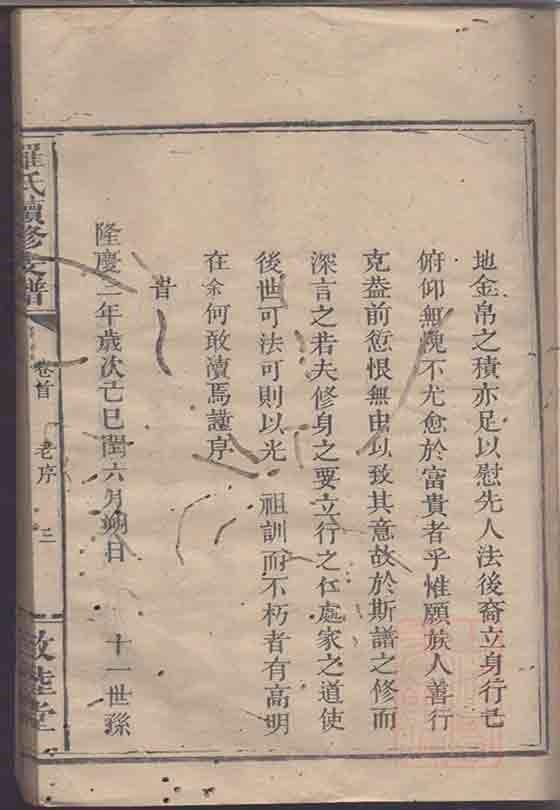 地金帛之積亦足以慰先人法後裔立身行已
俯仰無愧不尤愈於富貴者乎惟願族人善行
克葢前愆恨無由以致其意故於斯譜之修而
深言之若夫修身之要立行之仁處家之道使
後世可法可則以光　祖訓而不朽者有高明
在余何敢瀆焉謹序
昔
隆慶二年歲次亡巳閏六月朔日　十一世孫
羅氏續修支譜
卷首　老序　三
敦睦堂